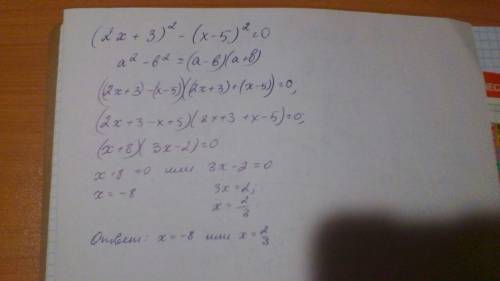 (2x + 3)² - (x-5)² = 0
a² - b² = (a-b)(a+b)
((2x+3)-(x-5))((2x+3)+(x-5))=0,
(2x+3-x+5)(2x+3+x-5)=0;
(x+8)(3x-2)=0
x+8=0 или 3x-2=0
x=-8 3x=2;
x=2/3
Ответ: x=-8 или x=2/3